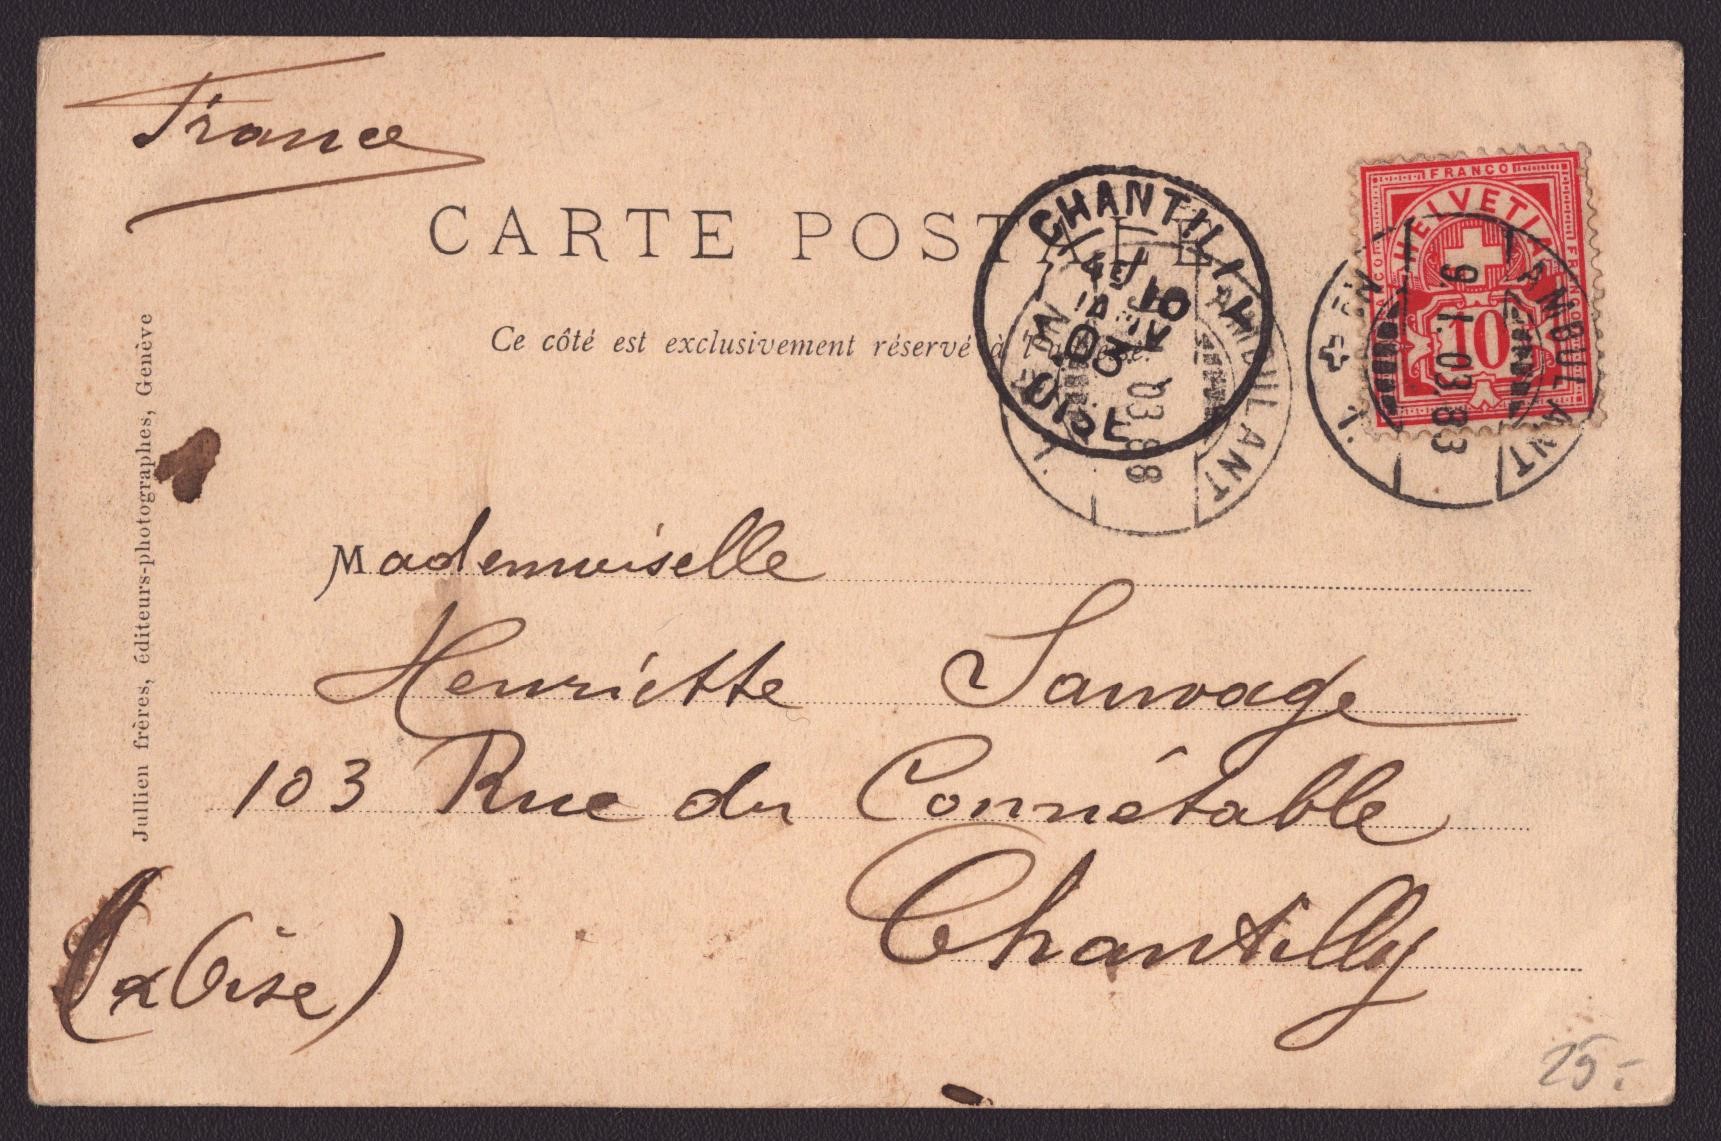 France
CARTE POSTALE
Ce côté est exclusivement réservé à l'adresse.
CHANTILLY
4E
10
JANV
03
OISE
AMBULANT
03.88
FRANCO
HELVETIA
FRANCO
10
AMBULANT
9. I. 03.83
Jullien frères, éditeurs-photographes, Genève
Mademoiselle
Henriette Sauvage
103 Rue du Connétable
Chantilly
(Oise)
25.-